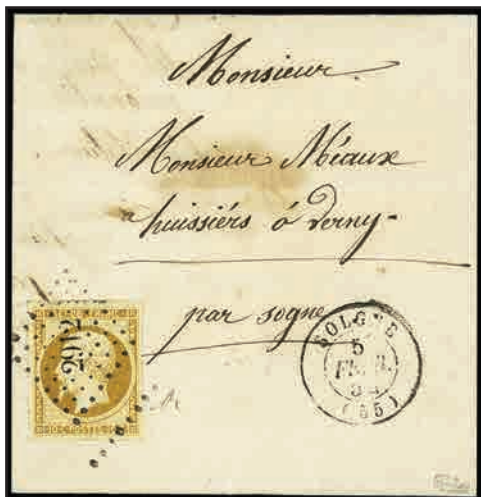 Monsieur
Monsieur Méaux
huissiérs á Verny-
par sogne
2912
SOLGNE
5
FEVR.
(55)